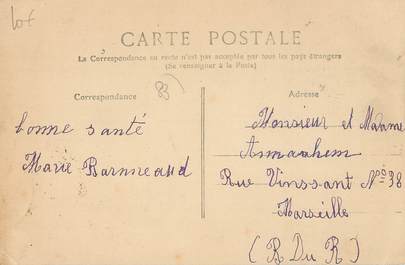 lot
CARTE POSTALE
La Correspondance au recto n'est pas acceptée par tous les pays étrangers
(Se renseigner à la Poste)
Correspondance
83
Adresse
bonne santé
Marie Barnneaud
Monsieur et Madame
Rue Vinssant Nº 38
Marseille
(B. Du. R)